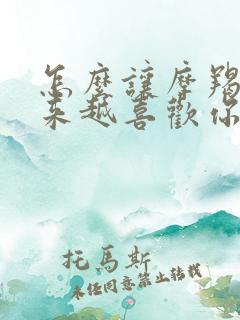 怎麼讓摩羯
來越喜歡你
托馬斯
未經同意禁止轉載